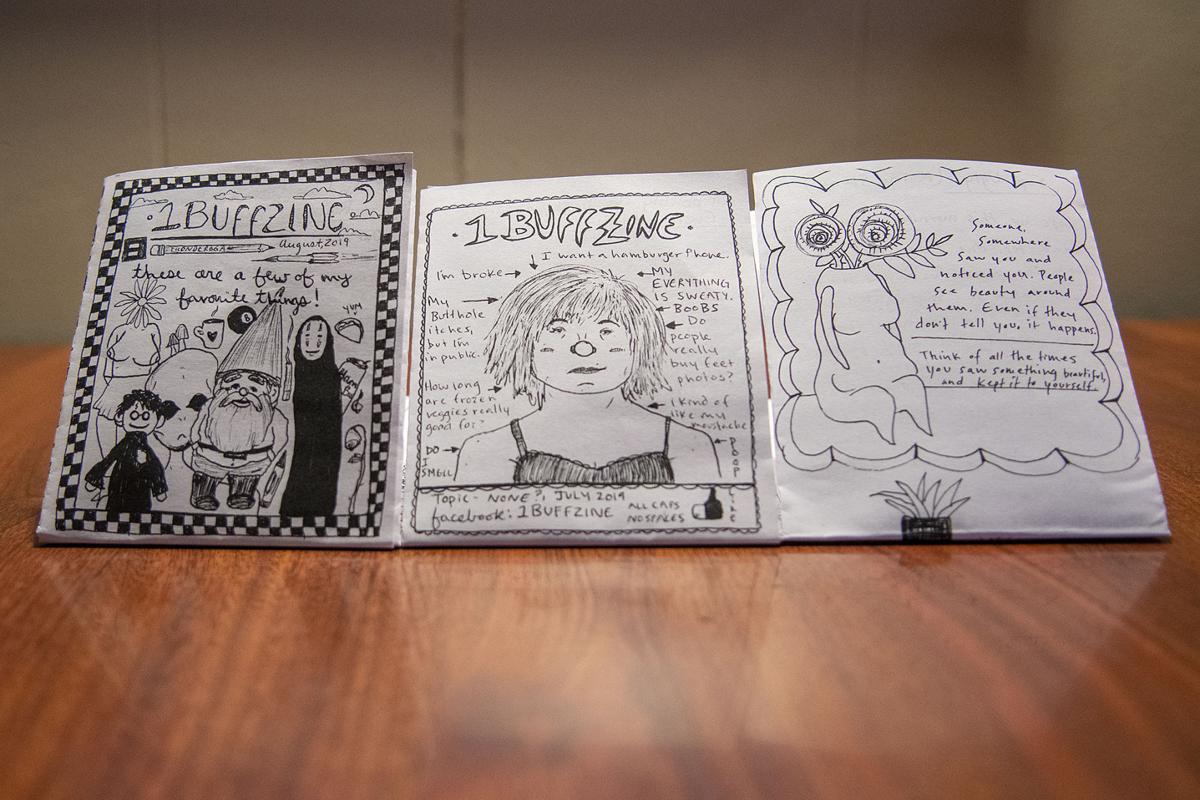 1BUFFZINE
TICONDEROGA
August, 2019
these are a few of my
favorite things!
8
YUM
1BUFFZINE
I want a hamburger Phone.
I'm broke
My
Butthole
itches,
but I'm
in public.
How long
are frozen
veggies really
good for?
DO
I
SMELL
MY
EVERYTHING
IS SWEATY.
BOOBS
Do
people
really
buy feet
photos?
I Kind of
like my
moustache
POOP
Topic - NONE?, JULY 2019
facebook: 1BUFFZINE
ALL CAPS
NO SPACES
LIKE
Someone,
Somewhere
Saw you and
noticed you. People
see beauty around
them. Even if they
don't tell you, it happens.
Think of all the times
you saw something beautiful,
and kept it to yourself.